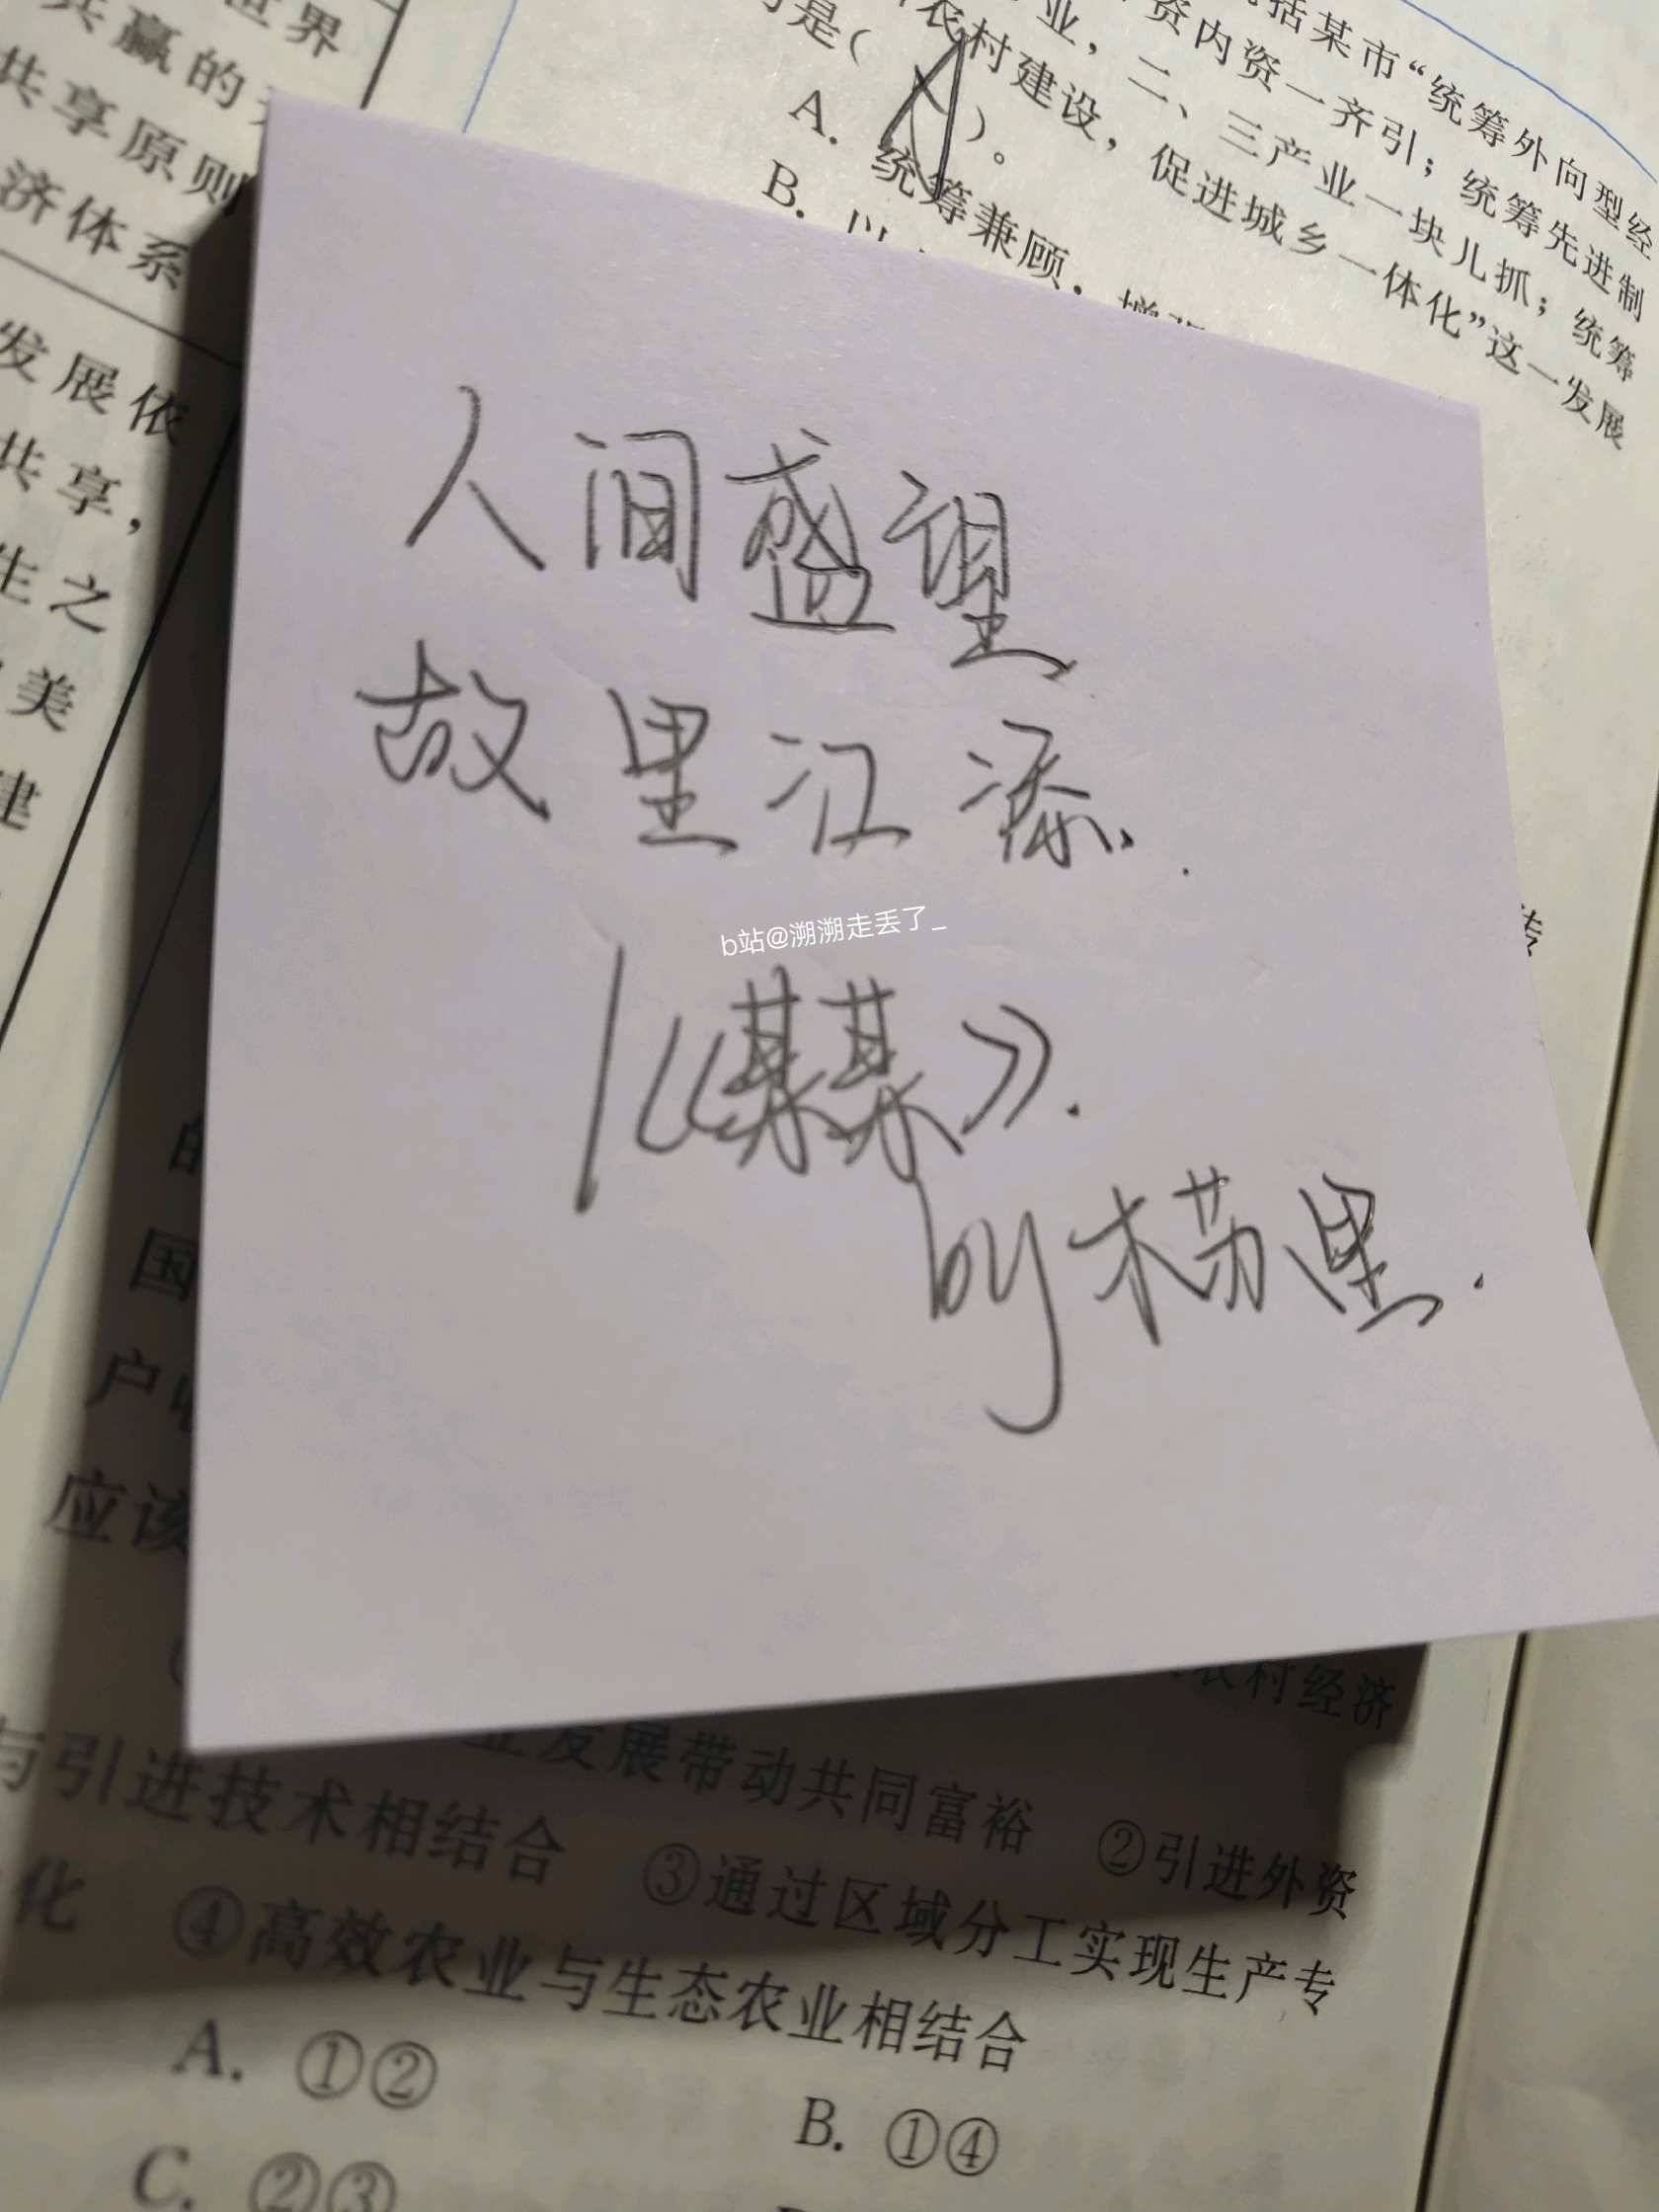 世界
共赢的
共享原则
济体系
发展依
共享，
生之
美
建
括某市“统筹外向型经
资内资一齐引；统筹先进制
业，二、三产业一块儿抓；统筹
农村建设，促进城乡一体化”这一发展
是（ ）。
A. 统筹兼顾，增强
B. 以
人间盛望
故里江添.
b站@溯溯走丢了_
/《某某》.
by木苏里.
的
国
户
应该
农村经济
业发展带动共同富裕 ②引进外资
与引进技术相结合 ③通过区域分工实现生产专
化 ④高效农业与生态农业相结合
A. ①②
B. ①④
C. ②③